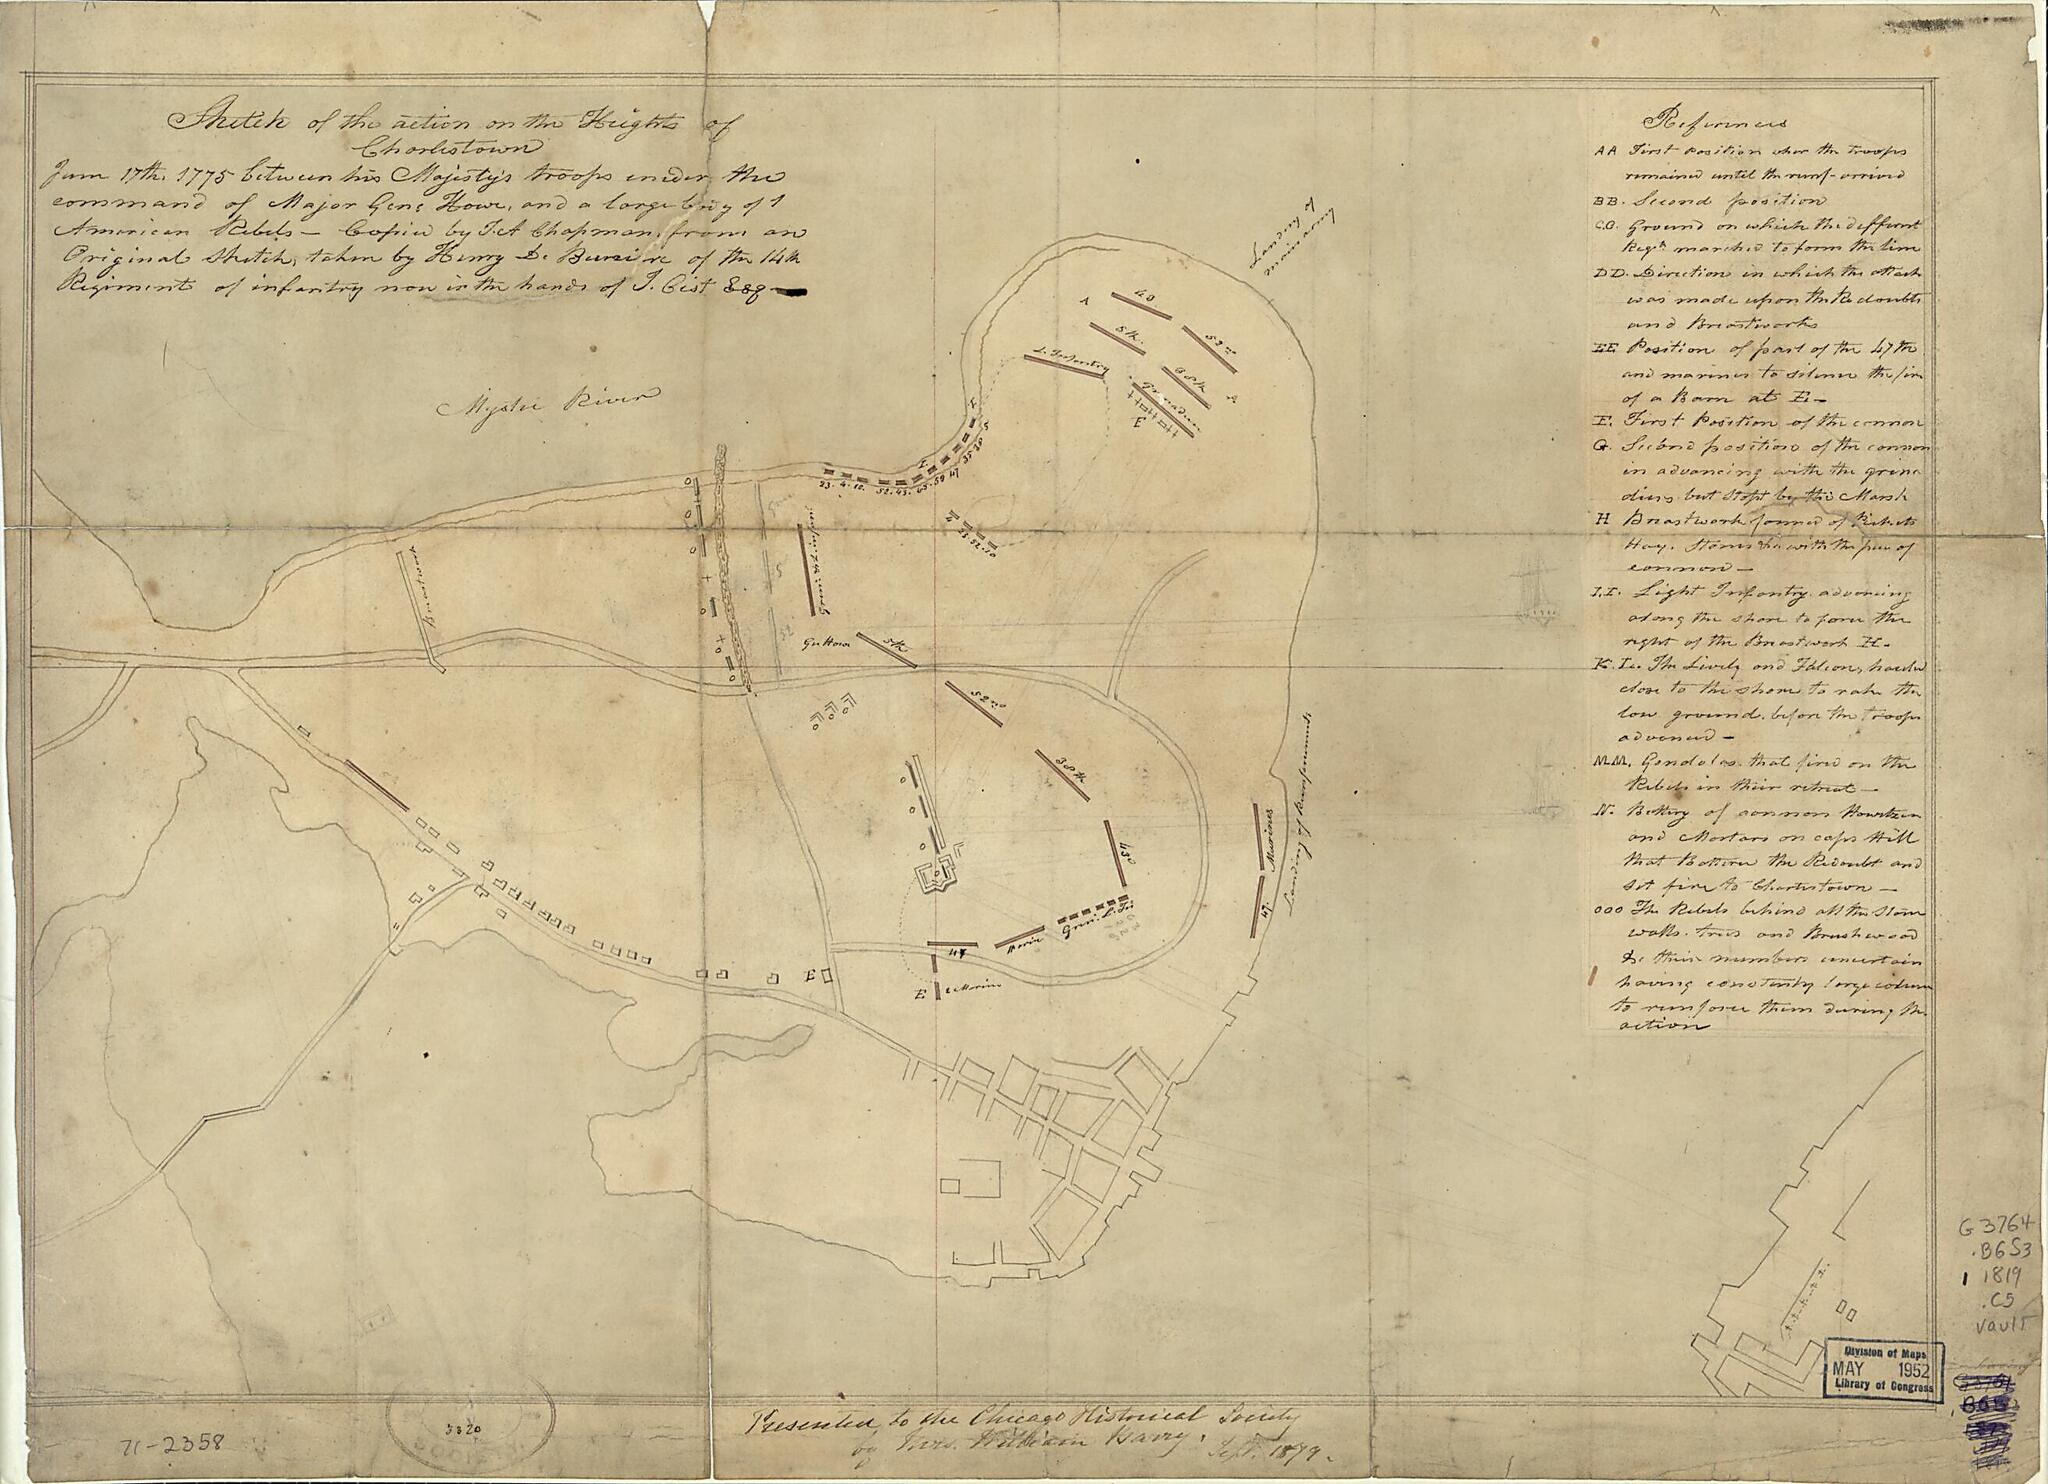 Sketch of the action on the Heights of
Charlestown
June 17th. 1775 between his Majesty's troops under the
command of Major Genl Howe, and a large body of
American Rebels — Copied by J.A Chapman, from an
Original Sketch, taken by Henry De Berniere of the 14th
Regiment of infantry now in the hands of J. Cist Esq
References
AA First Position wher the troops
remained until the reinf- arrived
BB. Second position
C.C. Ground on which the different
Regts marched to form the line
DD. Direction in which the attack
was made upon the Redoubts
and Breastworks
EE Position of part of the 47th
and marines to silence the fire
of a Barn at E—
F. First Position of the cannon
G. Second position of the cannon
in advancing with the grena
diers but stopt by the Marsh
H Breastwork formed of Pickets
Hay, Stones &c with the
cannon —
I.I. Light Infantry advancing
along the shore to force the
right of the Breastwork H.
K. L. The Lively and Falcon, hauled
close to the shore to rake the
low ground, before the troops
advanced —
MM. Gondolas that fired on the
Rebels in their retreat —
N. Battery of cannon Howitzer
and Mortars on cops Hill
that Battered the Redoubt and
set fire to Charlestown —
OOO The Rebels behind all the stone
walls, trees and Brushwood
& their numbers uncertain
having constantly large column
to reinforce them during the
action
Landing of
main army
Mystic River
A
40
5th
52nd
L. Infantry
38th
Grenadiers
A
E
I
I
35-30
23. 4. 10. 52. 43. 65. 59 47
4 23. 52. 10
Breastwork
5
52
Gen Howe
5th
52nd
38th
43d
Gren. L. In
Marin
47
E
2 Marine
E
Marines
47.
Landing of Reinforcements
Presented to the Chicago Historical Society
by Mrs. William Barry.
Sept. 1879.
71-2358
3820
G 3764
.B6S3
1819
.C5
Vault
Division of Maps
MAY 1952
Library of Congress